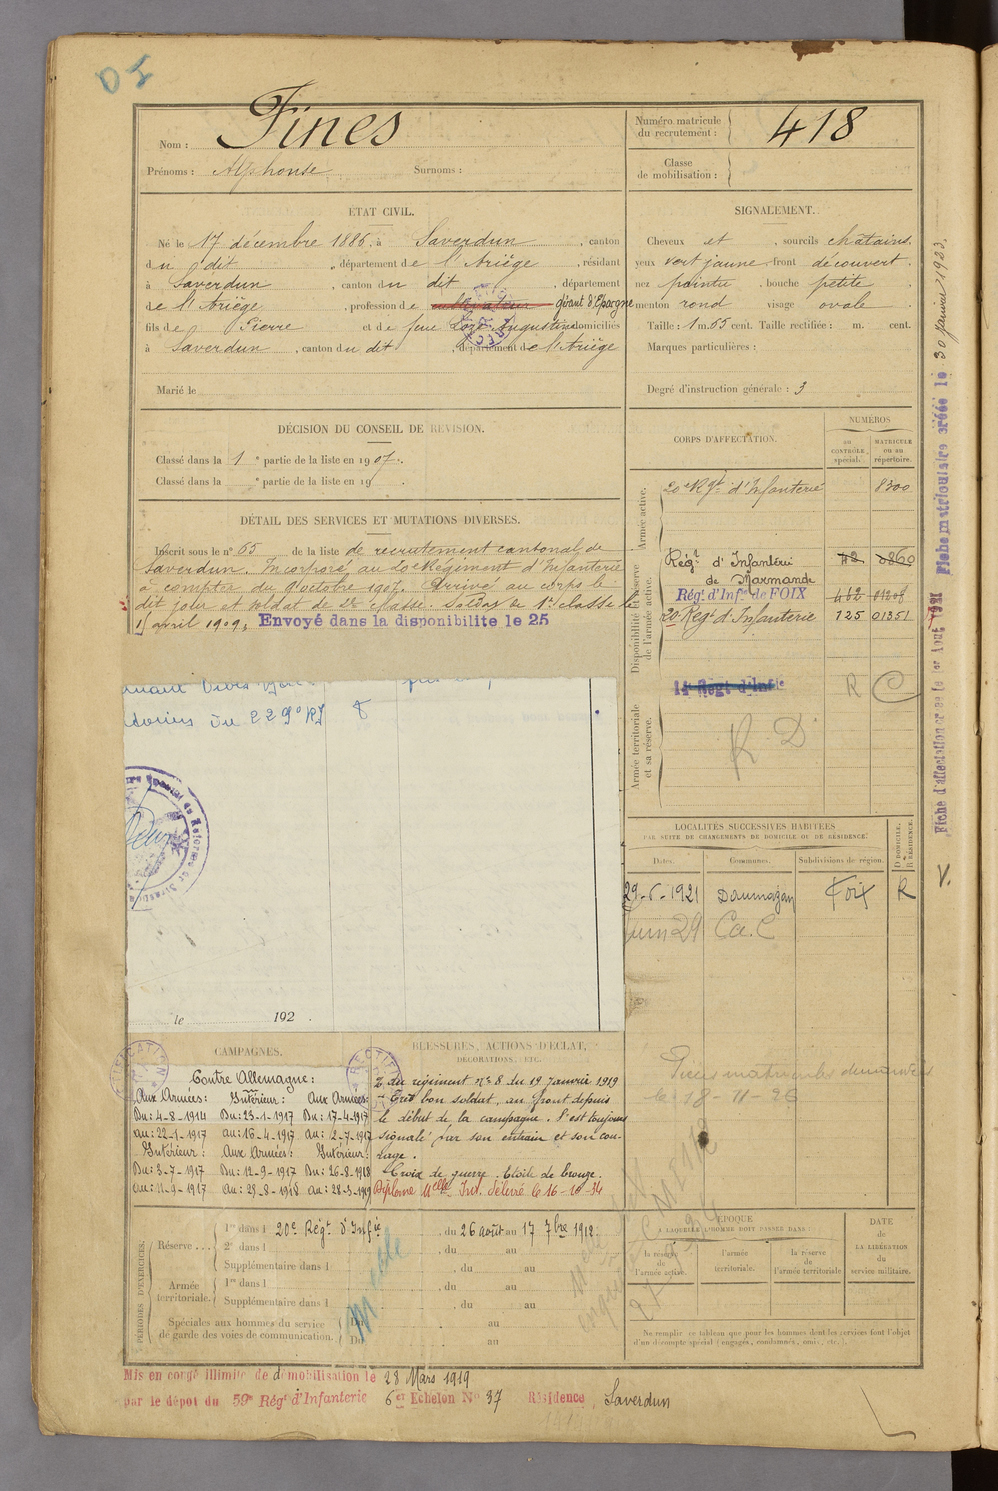 Nom : Fines
Prénoms : Alphonse Surnoms :
Numéro matricule du recrutement : 418
Classe de mobilisation :
ÉTAT CIVIL.
Né le 17 décembre 1886, à Saverdun, canton
du dit, département de l'Ariège, résidant
à Saverdun, canton du dit, département
de l'Ariège, profession de cultivateur gérant d'Epargne
fils de Pierre et de feue Augustine domiciliés
à Saverdun, canton du dit, département de l'Ariège
Marié le
SIGNALEMENT.
Cheveux et, sourcils châtains.
yeux vert jaune, front découvert.
nez pointu, bouche petite
menton rond visage ovale
Taille : 1 m. 55 cent. Taille rectifiée : m. cent.
Marques particulières :
Degré d'instruction générale : 3
DÉCISION DU CONSEIL DE REVISION.
Classé dans la 1e partie de la liste en 1907.
Classé dans la e partie de la liste en 19 .
DÉTAIL DES SERVICES ET MUTATIONS DIVERSES.
Inscrit sous le n° 65 de la liste de recrutement cantonal de
Saverdun. Incorporé au 20e Régiment d'Infanterie
à compter du 9 octobre 1907. Arrivé au corps le
dit jour et soldat de 2e classe. Soldat de 1re classe le
1 avril 1909. Envoyé dans la disponibilite le 25
du 229e RI
le 192 .
CORPS D'AFFECTATION.
NUMÉROS
au CONTRÔLE spécial.
MATRICULE ou au répertoire.
Armée active.
20e Rgt d'Infanterie 8300
Disponibilité et réserve de l'armée active.
Régt d'Infanterie
de Marmande
Rég. d'Inf. de FOIX 462 01208
20e Régt d'Infanterie 125 01351
Armée territoriale et sa réserve.
14e Régt d'Infie R C
R D
LOCALITÉS SUCCESSIVES HABITÉES
PAR SUITE DE CHANGEMENTS DE DOMICILE OU DE RÉSIDENCE.
Dates. Communes. Subdivisions de région. D DOMICILE. R RÉSIDENCE.
29-6-1921 Daumazan Foix R
juin 29
Pièces matricules demandées
le 18-11-26
Fiche d'affectation créée le 1er Août 1921
Fiche matriculaire créée le 30 Janvier 1923.
V.
CAMPAGNES.
Contre Allemagne :
Aux Armées : Intérieur : Aux Armées :
Du : 4-8-1914 Du : 23-1-1917 Du : 17-4-1917
au : 22-1-1917 au : 16-4-1917 au : 2-7-1917
Intérieur : Aux Armées : Intérieur :
Du : 3-7-1917 Du : 12-9-1917 Du : 26-8-1918
au : 11-9-1917 au : 25-8-1918 au : 28-3-1919
BLESSURES, ACTIONS D'ÉCLAT,
DÉCORATIONS, ETC.
du régiment n° 8 du 19 Janvier 1919
- Très bon soldat, au front depuis
le début de la campagne. S'est toujours
signalé par son entrain et son cou-
rage.
Croix de guerre. Etoile de bronze.
Diplome Melle Int. délivré le 16-10-34
PÉRIODES D'EXERCICES.
Réserve...
1re dans l 20e Régt d'Infie, du 26 août au 17 7bre 1912.
2e dans l , du au
Supplémentaire dans l , du au
Armée territoriale.
1re dans l , du au
Supplémentaire dans l , du au
Spéciales aux hommes du service
de garde des voies de communication.
Du au
Du au
ÉPOQUE
À LAQUELLE L'HOMME DOIT PASSER DANS :
la réserve de l'armée active.
l'armée territoriale.
la réserve de l'armée territoriale
DATE de LA LIBÉRATION du service militaire.
Ne remplir ce tableau que pour les hommes dont les services font l'objet
d'un décompte spécial (engagés, condamnés, omis, etc.).
Mis en congé illimité de démobilisation le 28 Mars 1919
par le dépôt du 59e Régt d'Infanterie 6er Echelon No 37 Résidence Saverdun